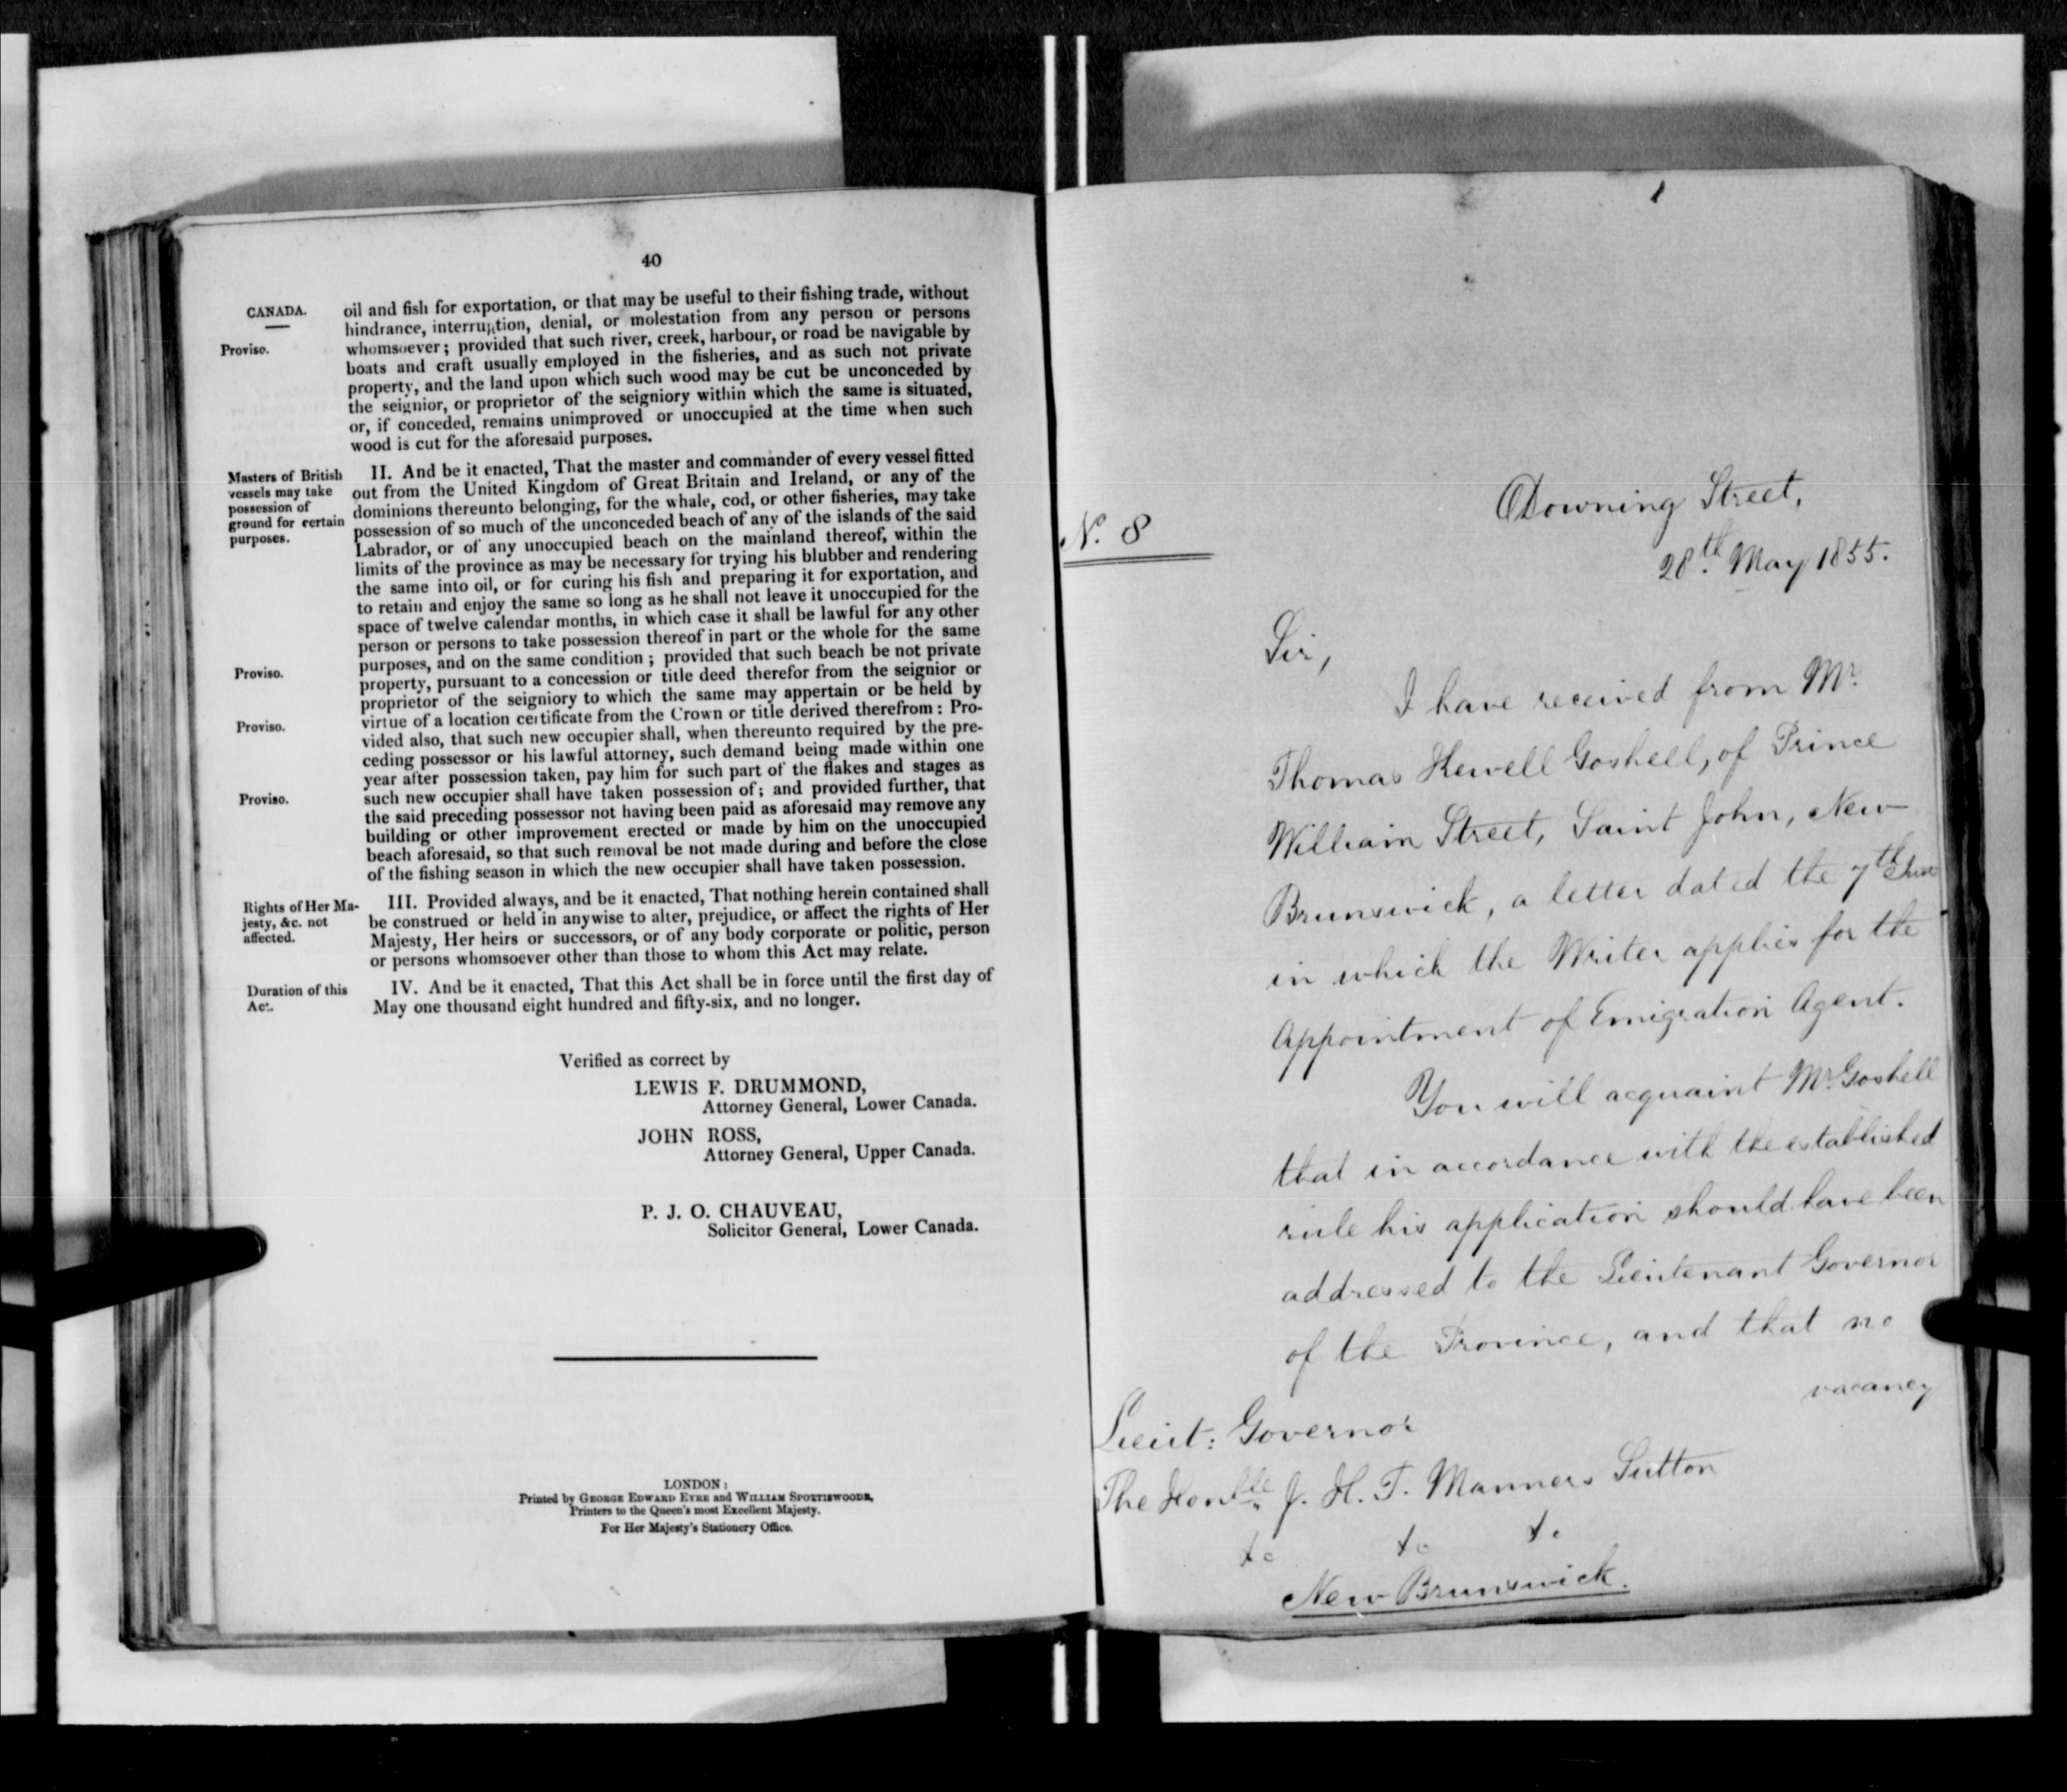 40
CANADA.
oil and fish for exportation, or that may be useful to their fishing trade, without
hindrance, interruption, denial, or molestation from any person or persons
Proviso.
whomsoever; provided that such river, creek, harbour, or road be navigable by
boats and craft usually employed in the fisheries, and as such not private
property, and the land upon which such wood may be cut be unconceded by
the seignior, or proprietor of the seigniory within which the same is situated,
or, if conceded, remains unimproved or unoccupied at the time when such
wood is cut for the aforesaid purposes.
Masters of British
vessels may take
possession of
ground for certain
purposes.
II. And be it enacted, That the master and commander of every vessel fitted
out from the United Kingdom of Great Britain and Ireland, or any of the
dominions thereunto belonging, for the whale, cod, or other fisheries, may take
possession of so much of the unconceded beach of any of the islands of the said
Labrador, or of any unoccupied beach on the mainland thereof, within the
limits of the province as may be necessary for trying his blubber and rendering
the same into oil, or for curing his fish and preparing it for exportation, and
to retain and enjoy the same so long as he shall not leave it unoccupied for the
space of twelve calendar months, in which case it shall be lawful for any other
person or persons to take possession thereof in part or the whole for the same
purposes, and on the same condition; provided that such beach be not private
Proviso.
property, pursuant to a concession or title deed therefor from the seignior or
proprietor of the seigniory to which the same may appertain or be held by
virtue of a location certificate from the Crown or title derived therefrom: Pro-
Proviso.
vided also, that such new occupier shall, when thereunto required by the pre-
ceding possessor or his lawful attorney, such demand being made within one
year after possession taken, pay him for such part of the flakes and stages as
Proviso.
such new occupier shall have taken possession of; and provided further, that
the said preceding possessor not having been paid as aforesaid may remove any
building or other improvement erected or made by him on the unoccupied
beach aforesaid, so that such removal be not made during and before the close
of the fishing season in which the new occupier shall have taken possession.
Rights of Her Ma-
jesty, &c. not
affected.
III. Provided always, and be it enacted, That nothing herein contained shall
be construed or held in anywise to alter, prejudice, or affect the rights of Her
Majesty, Her heirs or successors, or of any body corporate or politic, person
or persons whomsoever other than those to whom this Act may relate.
Duration of this
Act.
IV. And be it enacted, That this Act shall be in force until the first day of
May one thousand eight hundred and fifty-six, and no longer.
Verified as correct by
LEWIS F. DRUMMOND,
Attorney General, Lower Canada.
JOHN ROSS,
Attorney General, Upper Canada.
P. J. O. CHAUVEAU,
Solicitor General, Lower Canada.
LONDON:
Printed by GEORGE EDWARD EYRE and WILLIAM SPOTTISWOODE,
Printers to the Queen's most Excellent Majesty.
For Her Majesty's Stationery Office.
No. 8
Downing Street,
28th May 1855.
Sir,
I have received from Mr.
Thomas Hewell Goshell, of Prince
William Street, Saint John, New
Brunswick, a letter dated the 7th
in which the Writer applies for the
Appointment of Emigration Agent.
You will acquaint Mr. Goshell
that in accordance with the established
rule his application should have been
addressed to the Lieutenant Governor
of the Province, and that no
vacancy
Lieut: Governor
The Honble J. H. T. Manners Sutton
&c &c &c
New Brunswick.